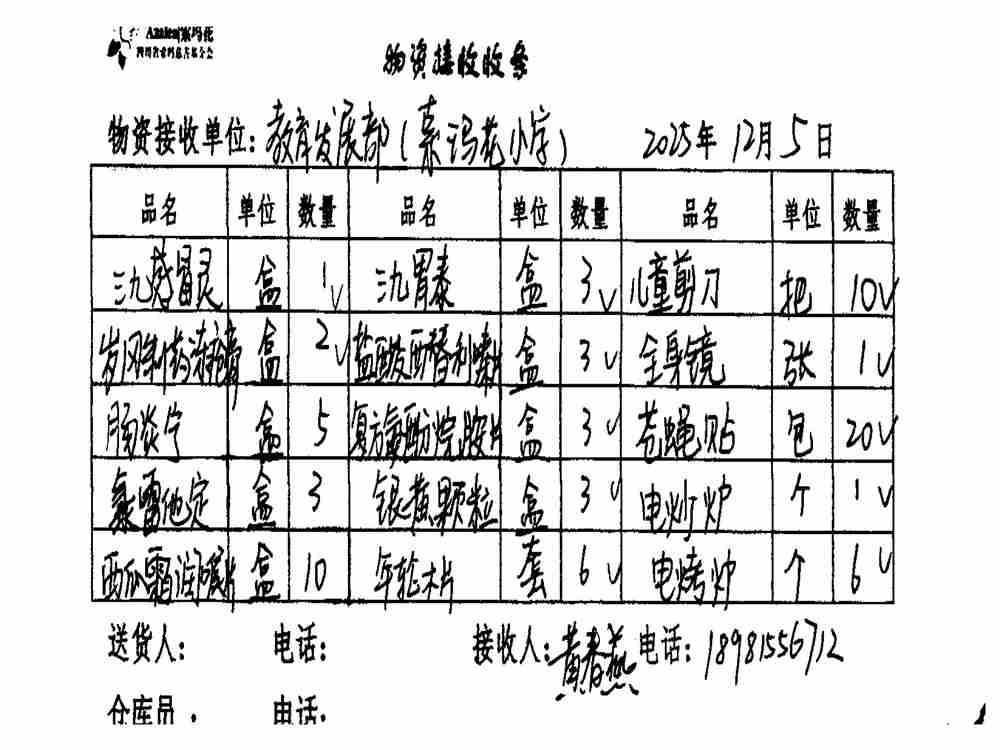 Azalea|索玛花
四川省索玛慈善基金会
物资接收收条
物资接收单位：教育发展部（索玛花小学） 2025年12月5日
品名 单位 数量 品名 单位 数量 品名 单位 数量
三九感冒灵 盒 1√ 三九胃泰 盒 3√ 儿童剪刀 把 10√
盒 2√ 盐酸西替利嗪片 盒 3√ 全身镜 张 1√
肠炎宁 盒 5 复方氨酚烷胺片 盒 3√ 苍蝇贴 包 20√
盒 3 银黄颗粒 盒 3√ 电灯炉 个 1√
西瓜霜润喉片 盒 10 年轮木片 套 6√ 电烤炉 个 6√
送货人： 电话： 接收人：黄春燕 电话：18981556712
仓库员： 电话：